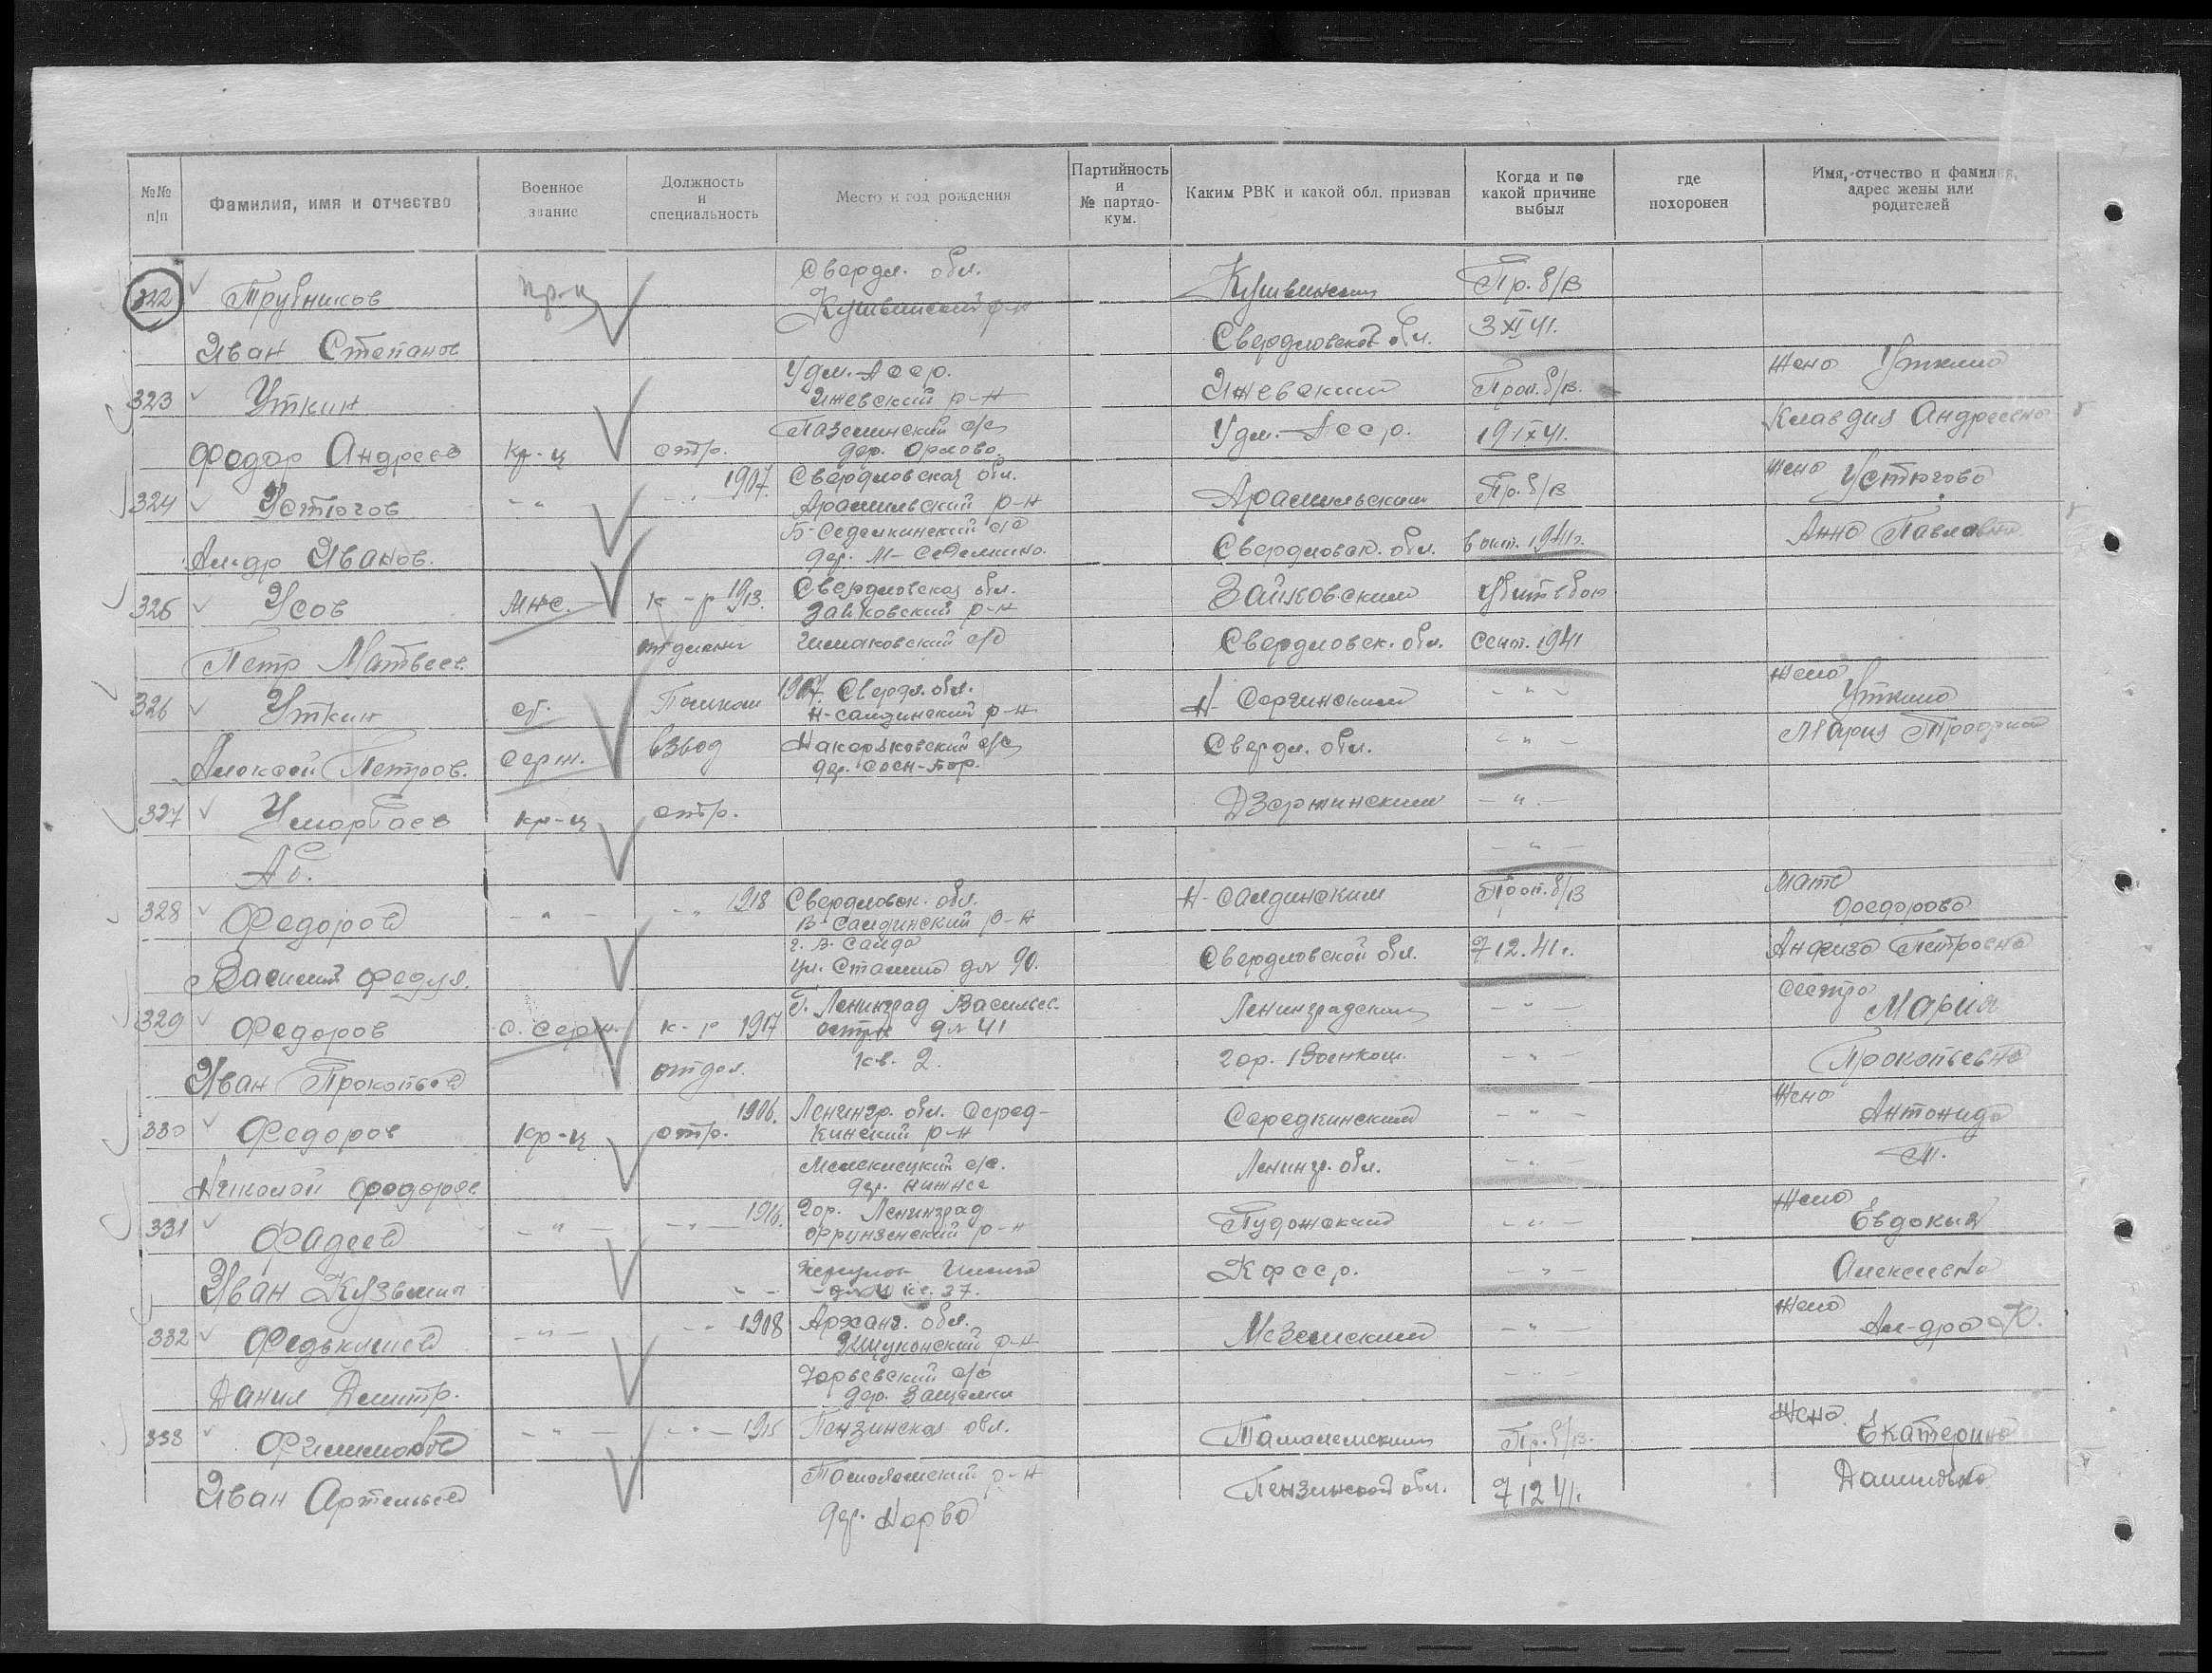 №№ п/п
Фамилия, имя и отчество
Военное звание
Должность и специальность
Место и год рождения
Партийность и № партдо-кум.
Каким РВК и какой обл. призван
Когда и по какой причине выбыл
где похоронен
Имя, отчество и фамилия, адрес жены или родителей
322 Трубников кр-ц Свердл. обл. Кушвинский р-н Кушвинским Пр. б/в
Иван Степанов Свердловской обл. 3 XI 41.
323 Уткин Удм. Асср. Ижевский р-н Ижевским Проп. б/в. Жена Уткина
Федор Андреев кр-ц стр. с/с дер. Орлово. Удм. Асср. 19 IX 41. Клавдия Андреевна
324 Устюгов - " - 1907. Свердловская обл. Арамильский р-н Арамильским Пр. б/в Жена Устюгова
Ал-др Иванов. Б-Седелкинский с/с дер. М-Седелкино. Свердловск. обл. в окт. 1941г. Анна Павловна
325 Усов мнс. к-р 1913. Свердловская обл. Зайковский р-н Зайковским Убит в бою
Петр Матвеев. отделен с/с Свердловск. обл. Сент. 1941
326 Уткин ст. Помком 1907. Свердл. обл. р-н Н-Сергинским - " - Жена Уткина
Алексей Петров. серж. взвод с/с дер. Сосн-Бор. Свердл. обл. - " - Мария
327 кр-ц стр. Дзержинским - " -
Аб. - " -
328 Федоров - " - - " - 1918 Свердловск. обл. В-Салдинский р-н Н-Салдинским Проп. б/в Мать Федорова
Василий Федул. г. В. Салда ул. Сталина д№ 90. Свердловской обл. 7 12.41г. Анфиза Петровна
329 Федоров с. серж. к-р 1917 Г. Ленинград Васильев. остр. д№ 41 Ленинградским - " - Сестра Мария
Иван Прокопьев отдел. кв. 2. гор. Военком. - " - Прокопьевна
330 Федоров кр-ц стр. 1906. Ленингр. обл. Серед-кинский р-н Середкинский - " - Жена Антонида
Николай Федоров с/с. дер. Нижнее Ленингр. обл. - " - М.
331 Фадеев - " - - " - 1916. Гор. Ленинград Фрунзенский р-н Пудожский - " - Жена Евдокия
Иван Кузьмин кв. 37. Кфсср. - " - Алексеевна
332 - " - - " - 1908 Арханг. обл. р-н Мезенский - " - Жена Ал-дра К.
Данил Дмитр. Юрьевский с/с дер. Защелки - " -
333 Филимонов - " - - " - 1915 Пензинская обл. Тамалинским Пр. б/в. Жена Екатерина
Иван Артемьев р-н дер. Пензинской обл. 7 12 41г.